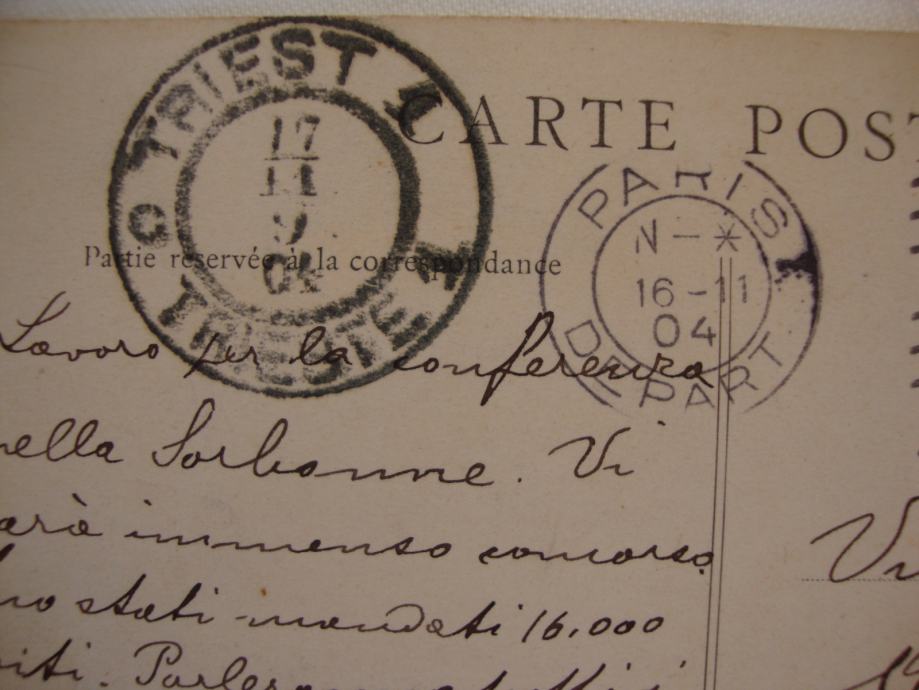 TRIEST 4
17
11
9
04
TRIESTE
CARTE POST
PARIS
N - *
16 - 11
04
DEPART
Partie réservée à la correspondance
Lavoro per la conferenza
nella Sorbonne. Vi
arà immenso concorso
no stati mandati 16.000
iti.